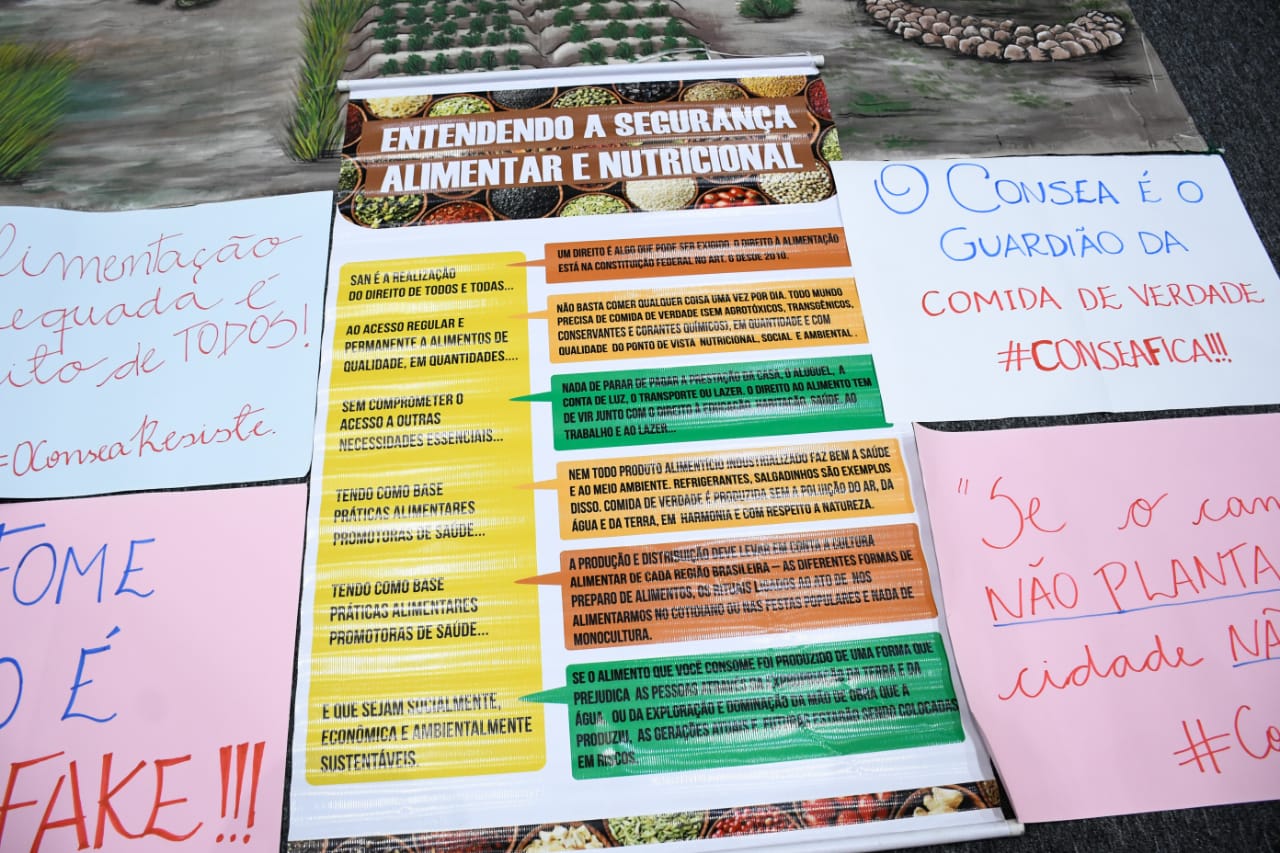 ENTENDENDO A SEGURANÇA
ALIMENTAR E NUTRICIONAL
SAN É A REALIZAÇÃO
DO DIREITO DE TODOS E TODAS...
UM DIREITO É ALGO QUE PODE SER EXIGIDO. O DIREITO À ALIMENTAÇÃO
ESTÁ NA CONSTITUIÇÃO FEDERAL NO ART. 6 DESDE 2010.
AO ACESSO REGULAR E
PERMANENTE A ALIMENTOS DE
QUALIDADE, EM QUANTIDADES....
NÃO BASTA COMER QUALQUER COISA UMA VEZ POR DIA. TODO MUNDO
PRECISA DE COMIDA DE VERDADE (SEM AGROTÓXICOS, TRANSGÊNICOS,
CONSERVANTES E CORANTES QUÍMICOS), EM QUANTIDADE E COM
QUALIDADE DO PONTO DE VISTA NUTRICIONAL, SOCIAL E AMBIENTAL.
SEM COMPROMETER O
ACESSO A OUTRAS
NECESSIDADES ESSENCIAIS...
NADA DE PARAR DE PAGAR A PRESTAÇÃO DA CASA, O ALUGUEL, A
CONTA DE LUZ, O TRANSPORTE OU LAZER. O DIREITO AO ALIMENTO TEM
DE VIR JUNTO COM O DIREITO À EDUCAÇÃO, HABITAÇÃO, SAÚDE, AO
TRABALHO E AO LAZER...
TENDO COMO BASE
PRÁTICAS ALIMENTARES
PROMOTORAS DE SAÚDE...
NEM TODO PRODUTO ALIMENTÍCIO INDUSTRIALIZADO FAZ BEM A SAÚDE
E AO MEIO AMBIENTE. REFRIGERANTES, SALGADINHOS SÃO EXEMPLOS
DISSO. COMIDA DE VERDADE É PRODUZIDA SEM A POLUIÇÃO DO AR, DA
ÁGUA E DA TERRA, EM HARMONIA E COM RESPEITO A NATUREZA.
TENDO COMO BASE
PRÁTICAS ALIMENTARES
PROMOTORAS DE SAÚDE...
A PRODUÇÃO E DISTRIBUIÇÃO DEVE LEVAR EM CONTA A CULTURA
ALIMENTAR DE CADA REGIÃO BRASILEIRA – AS DIFERENTES FORMAS DE
PREPARO DE ALIMENTOS, OS RITUAIS LIGADOS AO ATO DE NOS
ALIMENTARMOS NO COTIDIANO OU NAS FESTAS POPULARES E NADA DE
MONOCULTURA.
E QUE SEJAM SOCIALMENTE,
ECONÔMICA E AMBIENTALMENTE
SUSTENTÁVEIS.
SE O ALIMENTO QUE VOCÊ CONSOME FOI PRODUZIDO DE UMA FORMA QUE
PREJUDICA AS PESSOAS ATRAVÉS DA EXPROPRIAÇÃO DA TERRA E DA
ÁGUA, OU DA EXPLORAÇÃO E DOMINAÇÃO DA MÃO DE OBRA QUE A
PRODUZIU, AS GERAÇÕES ATUAIS E FUTURAS ESTARÃO SENDO COLOCADAS
EM RISCOS.
limentação
equada é
ito de TODOS!
#OConseaResiste.
FOME
O É
FAKE!!!
O CONSEA É O
GUARDIÃO DA
COMIDA DE VERDADE
#CONSEAFICA!!!
"Se o cam
NÃO PLANTA
cidade NÃ
#Co